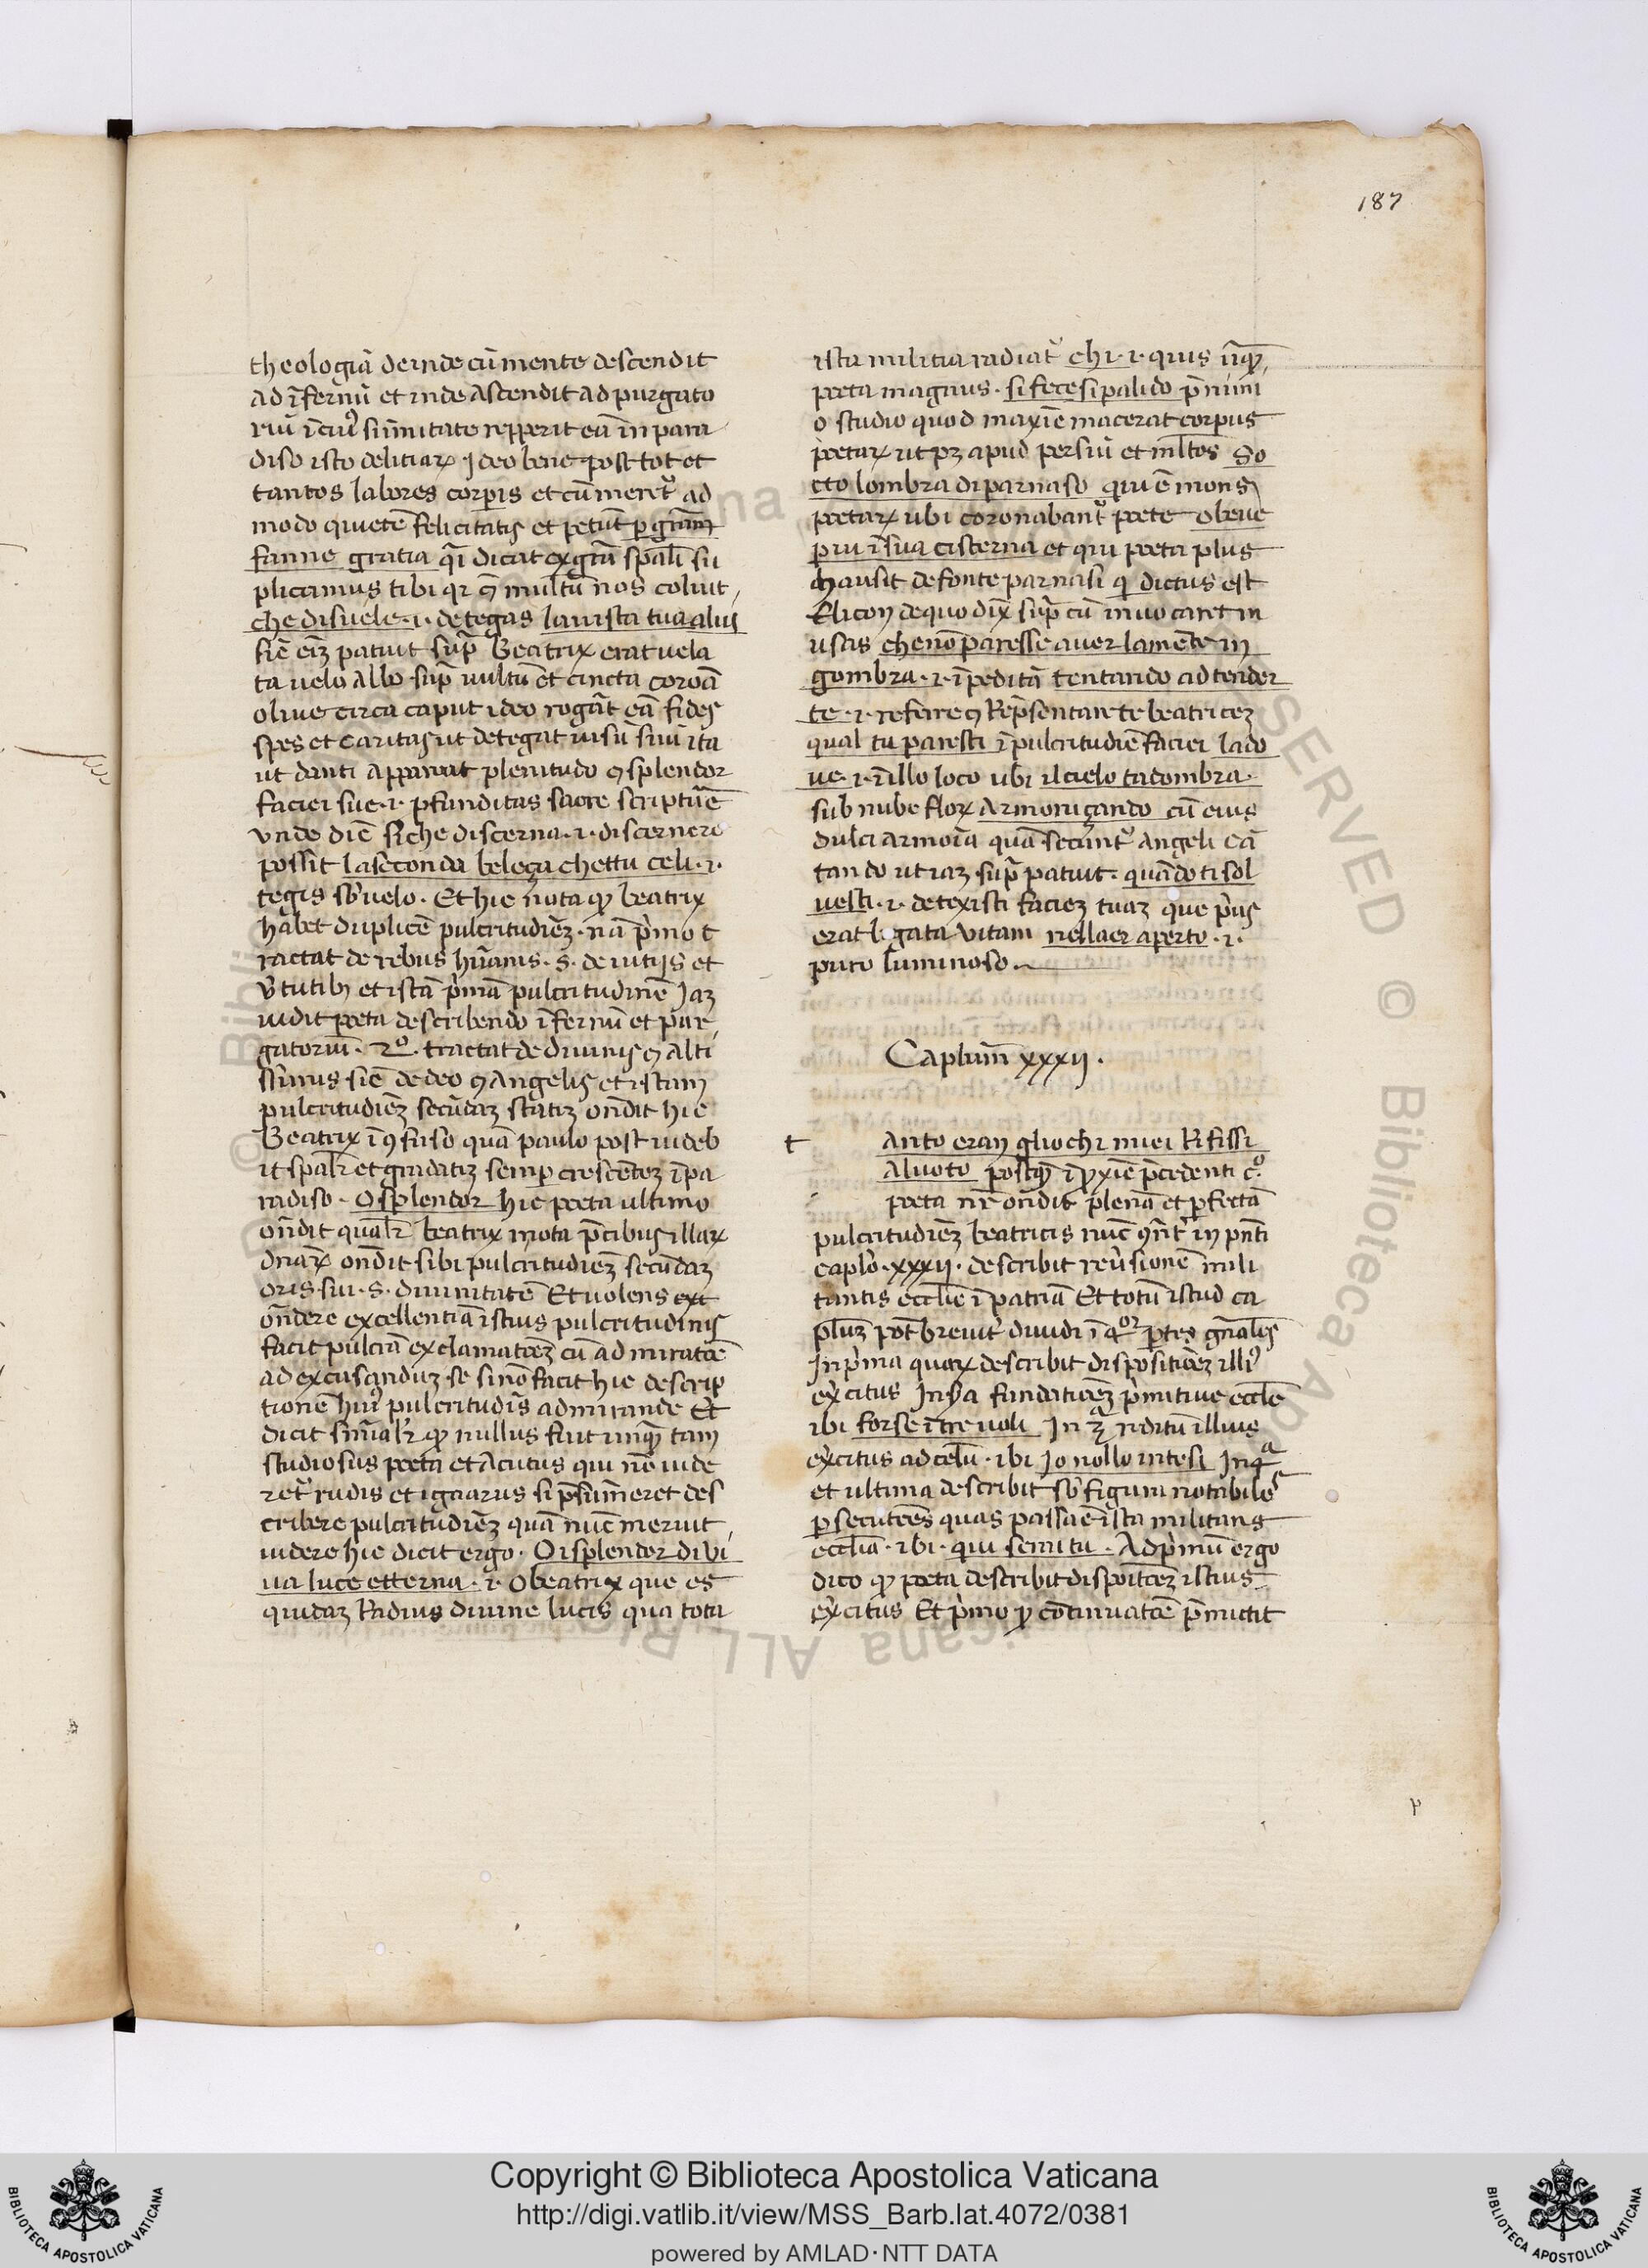 187
theologiā deinde cū mente descendit
ad īfernū et inde ascendit ad purgato
riū ī cuiꝰ sūmitate repperit eā īn para
diso isto delitiaꝝ Ideo bene post tot et
tantos labores corꝑis et cū meretᷣ ad
modo quietē felicitatis et petūt ꝑ grām
fanne gratia qͣi dicat ex grā spāli su
plicamus tibi qꝛ multū nos coluit
che disuele ·i· detegas la uista tua alui
siē eīz patuit supͣ Beatrix erat uela
ta uelo albo supͣ uultū et cincta coronā
oliue circa caput ideo rogāt eā fides
spes et caritas ut detegat uisū suū ita
ut danti appareat plenitudo ⁊ splendor
faciei sue ·i· ꝓfunditas sacre scriptūe
vnde diē siche discerna ·i· discernere
possit la seconda beleça chettu celi ·i·
tegis sb̄ uelo · Et hic nota ꝙ beatrix
habet duplicē pulcritudiēz · nā pͥmo t
ractat de rebus hūanis · s· de uitijs et
v̄tutibꝫ et istā pͥmā pulcritudinē jaz
uidit poeta describendo īfernū et pur
gatoriū · 2º · tractat de diuinis ⁊ alti
ssimis siē de deo ⁊ Angelis et istam
pulcritudiēz secūdaz statīz ondīt hic
Beatrix ī ꝯfuso quā paulo post uideb
it spālr̄ et gradatīz semꝑ crescētez ī pa
radiso · O splendor hic poeta ultimo
ondīt qualr̄ beatrix mota p̄cibus illaꝝ
dnāꝝ ondīt sibi pulcritudiēz secūdaz
oris sui · s· diuinitatē Et uolens ext
ōndere excellentiā istius pulcritudinis
facit pulcrā exclamatōez cū admiratōe
ad excusanduz se si nō facit hic descrip
tionē huiꝰ pulcritudīs admirande Et
dicit ꝙ nullus fuit unqͣ tam
studiosus poeta et acutus qui nō uide
retᷣ rudis et ignarus si p̄sūmeret des
cribere pulcritudiēz quā nūc meruit
uidere hic dicit ergo · O isplendor di ui
ua luce etterna ·i· o beatrix que es
quidaz Radius diuine lucis qua tota
ista militia radiatᷣ chi ·i· quis ūqͣ
poeta magnus · si fece si palido p̄ nimi
o studio quod maxīe macerat corpus
poetaꝝ ut pꝫ apud persiū et ml̄tos So
cto lombra di parnaso qui ē mons
poetaꝝ ubi coronabantᷣ poete o beue
piu ī sua cisterna et qui poeta plus
hausit de fonte parnasi q̄ dictus est
Elicon de quo dix̄ supͣ cū inuocaret m
usas che nō paresse auer la mente in
gombra ·i· īpeditā tentando ad render
te ·i· referre ⁊ Rep̄sentare te beatricez
qual tu paresti ī pulcritudiē faciei la do
ue ·i· ī illo loco ubi il cielo tadombra ·
sub nube floꝝ armoniçando cū eius
dulci armoīa quā secūntᷣ angeli cā
tando ut iaz supͣ patuit · quādo ti sol
uesti ·i· detexisti faciez tuaz que pͥus
erat ligata vitam nellaer aperto ·i·
puro luminoso
Caplum̄ xxxij ·
t anto eran gliochi miei Rifissi
aluoto postqͣ ī ꝓxīe p̄cedenti cº
poeta nr̄ ondīt plenā et ꝑfectā
pulcritudiēz beatricis nūc ꝯn̄tᷣ in pn̄ti
caplo · xxxij · describit reūsionē mili
tantis eccl̄ie ī patriā Et totū istud ca
pluz pōt breuitᷣ diuidi ī 4ᵒʳ ꝑtes gn̄ales
In pͥma quaꝝ describit dispositiōez illiꝰ
exͬcitus In 2ᵃ fundatiōez pͥmitiue eccl̄e
ibi forse ī tre uoli In 3ᵃ reditū illius
exͬcitus ad celū · ibi Io nollo intesi In 4ᵃ
et ultima describit sb̄ figura notabiles
ꝑsecutōes quas passa ē ista militans
eccl̄ia · ibi · qui seruitu · Ad pͥmū ergo
dico ꝙ poeta describit dispōitōez istius
exͬcitus Et pͥmo ꝓ cōtinuatōe p̄mictit
Copyright © Biblioteca Apostolica Vaticana
http://digi.vatlib.it/view/MSS_Barb.lat.4072/0381
powered by AMLAD·NTT DATA
BIBLIOTECA APOSTOLICA VATICANA
BIBLIOTECA APOSTOLICA VATICANA